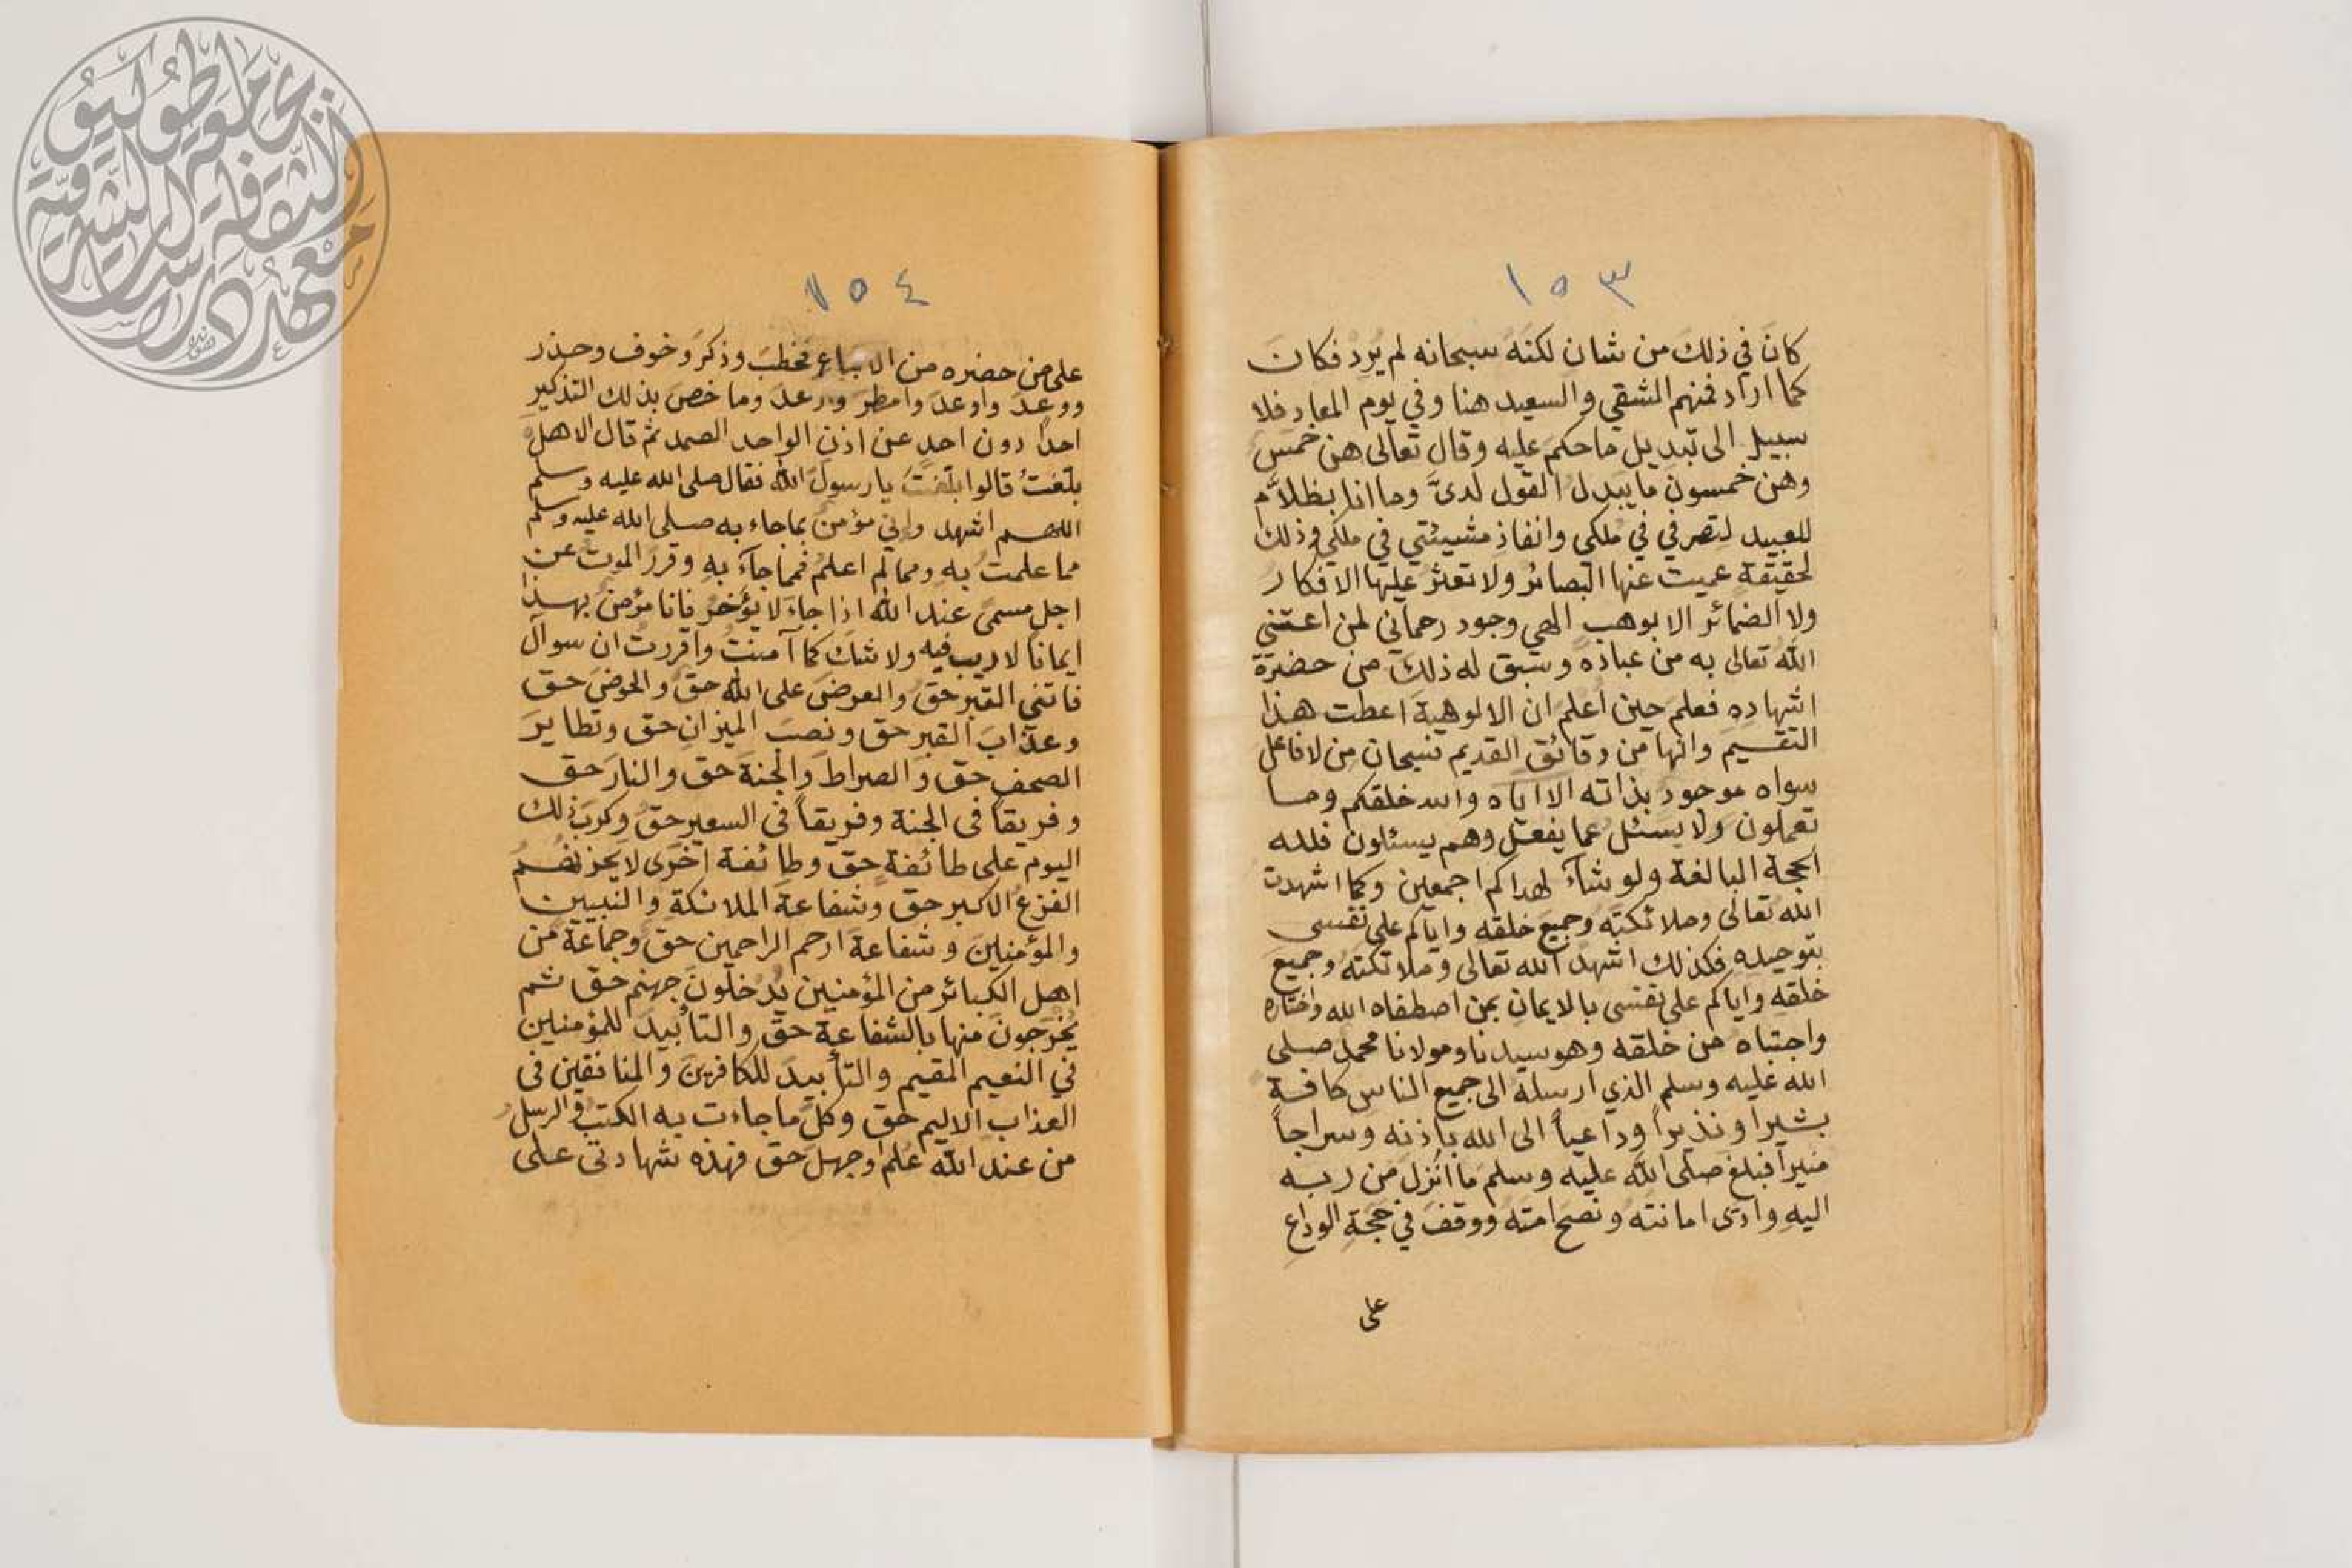 ١٥٣
كان في ذلك من شان لكنه سبحانه لم يرد فكان
كما اراد فمنهم الشقي والسعيد هنا وفي يوم المعاد فلا
سبيل الى تبديل ما حكم عليه وقال تعالى هن خمس
وهن خمسون ما يبدل القول لدىَّ وما انا بظلاَّم
للعبيد لتصرفي في ملكي وانفاذ مشيئتي في ملكي وذلك
لحقيقة عميت عنها البصائر ولا تعثر عليها الافكار
ولا الضمائر الا بوهب الهي وجود رحماني لمن اعتنى
الله تعالى به من عباده وسبق له ذلك من حضرة
اشهاده فعلم حين اعلم ان الالوهية اعطت هذا
التقسيم وانها من دقائق القديم فسبحان من لا فاعل
سواه موجود بذاته الا اياه والله خلقكم وما
تعملون ولا يسئل عما يفعل وهم يسئلون فلله
الحجة البالغة ولو شآء لهداكم اجمعين وكما اشهدت
الله تعالى وملائكته وجميع خلقه واياكم على نفسى
بتوحيده فكذلك اشهد الله تعالى وملائكته وجميع
خلقه واياكم على نفسى بالايمان بمن اصطفاه الله واختاره
واجتباه من خلقه وهو سيدنا ومولانا محمد صلى
الله عليه وسلم الذي ارسله الى جميع الناس كافة
بشيراً ونذيراً وداعياً الى الله باذنه وسراجاً
منيراً فبلغ صلى الله عليه وسلم ما انزل من ربه
اليه وادى امانته ونصح امته ووقف في حجة الوداع
على
١٥٤
على من حضره من الاتباع فخطب وذكر وخوف وحذر
ووعد واوعد وامطر ورعد وما خص بذلك التذكير
احداً دون احد عن اذن الواحد الصمد ثم قال الاهل
بلّغتُ قالوا بلّغتَ يا رسول الله فقال صلى الله عليه وسلم
اللهم اشهد واني مؤمن بما جاء به صلى الله عليه وسلم
مما علمت به ومما لم اعلم فمما جآء به وقرر الموت عن
اجل مسمى عند الله اذا جاء لا يؤخر فانا مؤمن بهذا
ايمانا لا ريب فيه ولا شك كما آمنت واقررت ان سوآل
فاتني القبر حق والعرض على الله حق والحوض حق
وعذاب القبر حق ونصب الميزان حق وتطاير
الصحف حق والصراط والجنة حق والنار حق
وفريقاً في الجنة وفريقاً في السعير حق وكرب ذلك
اليوم على طائفة حق وطائفة اخرى لا يحزنهم
الفزع الاكبر حق وشفاعة الملائكة والنبيين
والمؤمنين وشفاعة ارحم الراحمين حق وجماعة من
اهل الكبائر من المؤمنين يدخلون جهنم حق ثم
يخرجون منها بالشفاعة حق والتأبيد للمؤمنين
في النعيم المقيم والتأبيد للكافرين والمنافقين في
العذاب الاليم حق وكل ما جاءت به الكتب والرسل
من عند الله علم او جهل حق فهذه شهادتى على